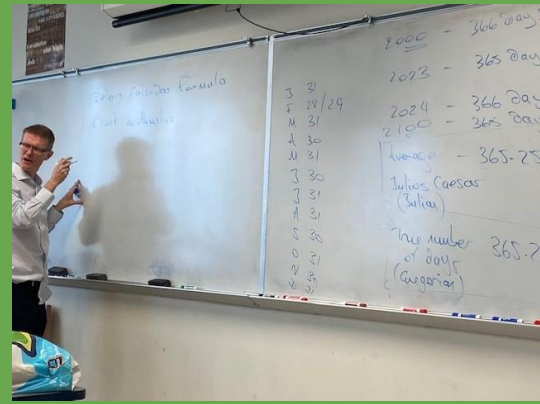 Calendar Formula
J 31
F 28/29
M 31
A 30
M 31
J 30
J 31
A 31
S 30
O 31
N 30
2000 - 366 days
2023 - 365 day
2024 - 366 day
2100 - 365 day
Average - 365.25
Julius Caesar
(Julian)
True number 365.2
of days
(Gregorian)